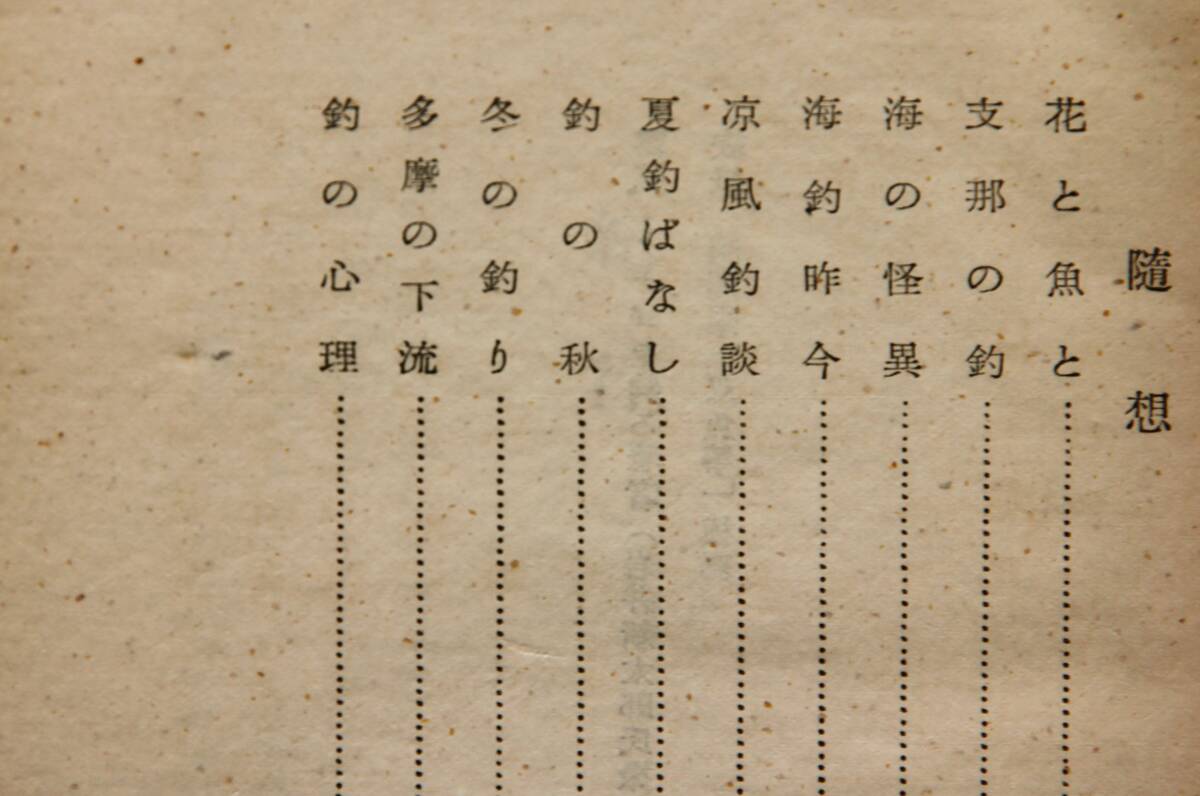 隨想
花と魚と
支那の釣
海の怪異
海釣昨今
凉風釣談
夏釣ばなし
釣の秋
冬の釣り
多摩の下流
釣の心理